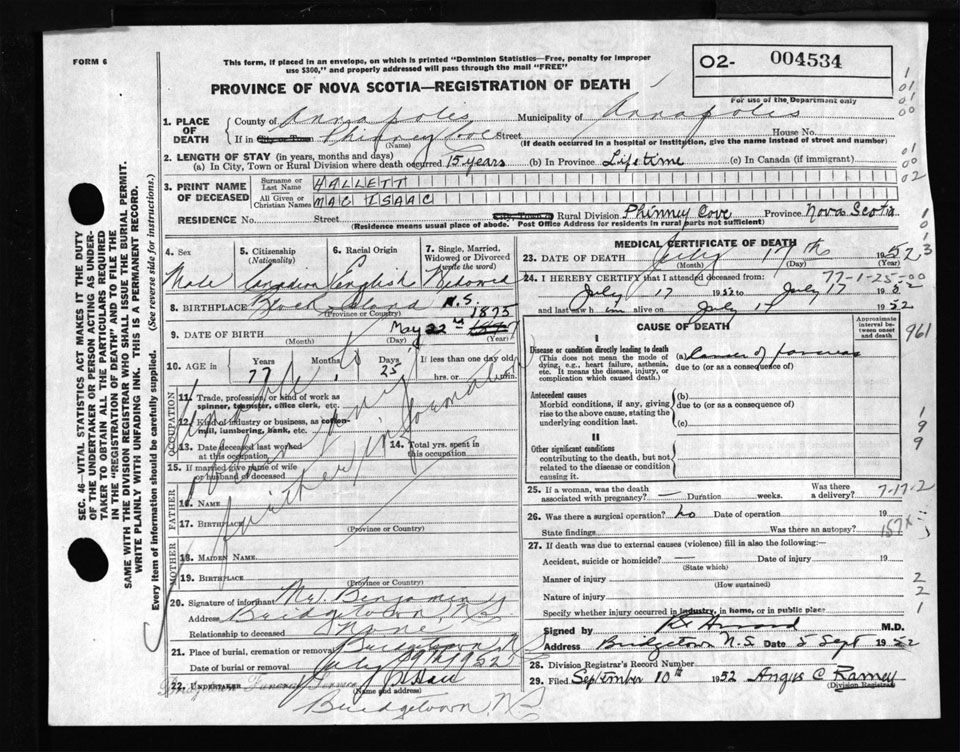 FORM 6
This form, if placed in an envelope, on which is printed "Dominion Statistics—Free, penalty for improper
use $300," and properly addressed will pass through the mail "FREE"
02- 004534
For use of the Department only
PROVINCE OF NOVA SCOTIA—REGISTRATION OF DEATH
1. PLACE OF DEATH
County of Annapolis Municipality of Annapolis
If in City or Town Phinney Cove Street House No.
(Name) (If death occurred in a hospital or institution, give the name instead of street and number)
2. LENGTH OF STAY (in years, months and days)
(a) In City, Town or Rural Division where death occurred 15 years (b) In Province Lifetime (c) In Canada (if immigrant)
3. PRINT NAME OF DECEASED
Surname or Last Name HALLETT
All Given or Christian Names MAC ISAAC
RESIDENCE No. Street City or Town or Rural Division Phinney Cove Province Nova Scotia
(Residence means usual place of abode. Post Office Address for residents in rural parts not sufficient)
SEC. 46—VITAL STATISTICS ACT MAKES IT THE DUTY
OF THE UNDERTAKER OR PERSON ACTING AS UNDER-
TAKER TO OBTAIN ALL THE PARTICULARS REQUIRED
IN THE "REGISTRATION OF DEATH" AND TO FILE THE
SAME WITH THE DIVISION REGISTRAR WHO SHALL ISSUE THE BURIAL PERMIT.
WRITE PLAINLY WITH UNFADING INK. THIS IS A PERMANENT RECORD.
Every item of information should be carefully supplied. (See reverse side for instructions.)
4. Sex
Male
5. Citizenship
(Nationality)
Canadian
6. Racial Origin
English
7. Single, Married,
Widowed or Divorced
(write the word)
Widowed
8. BIRTHPLACE Island N.S.
(Province or Country)
1875
9. DATE OF BIRTH May 22
(Month) (Day) (Year)
10. AGE in Years 77 Months 1 Days 25 If less than one day old
hrs. or min.
OCCUPATION
11. Trade, profession, or kind of work as
spinner, teamster, office clerk, etc.
12. Kind of industry or business, as cotton-
mill, lumbering, bank, etc.
13. Date deceased last worked
at this occupation
14. Total yrs. spent in
this occupation
15. If married give name of wife
or husband of deceased
further information
FATHER
16. NAME
17. BIRTHPLACE
(Province or Country)
MOTHER
18. MAIDEN NAME
19. BIRTHPLACE
(Province or Country)
20. Signature of informant Benjamin
Address Bridgetown, NS
Relationship to deceased None
21. Place of burial, cremation or removal Bridgetown N
Date of burial or removal July 19th 1952
22. UNDERTAKER
(Name and address)
Bridgetown, NS
MEDICAL CERTIFICATE OF DEATH
23. DATE OF DEATH July 17th 1952
(Month) (Day) (Year)
24. I HEREBY CERTIFY that I attended deceased from: 77-1-25-00
July 17 1952 to July 17 1952
and last saw him alive on July 17 1952
CAUSE OF DEATH
Approximate
interval between
onset
and death
I
Disease or condition directly leading to death
(This does not mean the mode of
dying, e.g., heart failure, asthenia,
etc. It means the disease, injury, or
complication which caused death.)
(a) Cancer of pancreas
due to (or as a consequence of)
Antecedent causes
Morbid conditions, if any, giving
rise to the above cause, stating the
underlying condition last.
(b)
due to (or as a consequence of)
(c)
II
Other significant conditions
contributing to the death, but not
related to the disease or condition
causing it.
961
25. If a woman, was the death
associated with pregnancy? — Duration weeks. Was there
a delivery?
7-17-2
26. Was there a surgical operation? no Date of operation 19
State findings Was there an autopsy?
157X
27. If death was due to external causes (violence) fill in also the following:—
Accident, suicide or homicide? — Date of injury 19
(State which)
Manner of injury
(How sustained)
Nature of injury
Specify whether injury occurred in industry, in home, or in public place
Signed by M.D.
Address Bridgetown N.S. Date 5 Sept 1952
28. Division Registrar's Record Number
29. Filed September 10th 1952 Angus C Ramey
(Division Registrar)